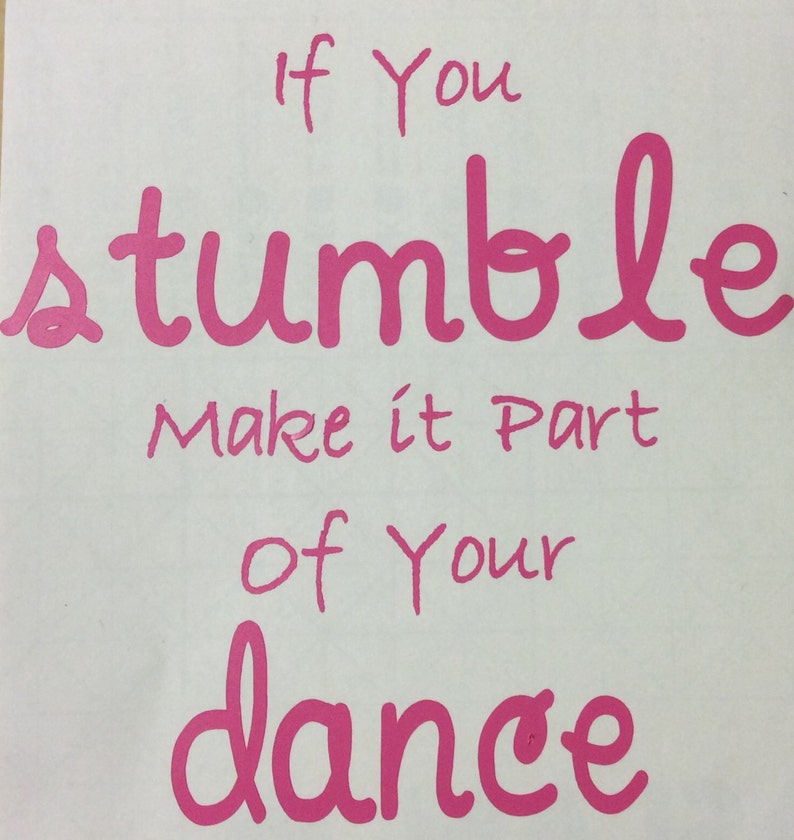 If You
stumble
Make it Part
Of Your
dance